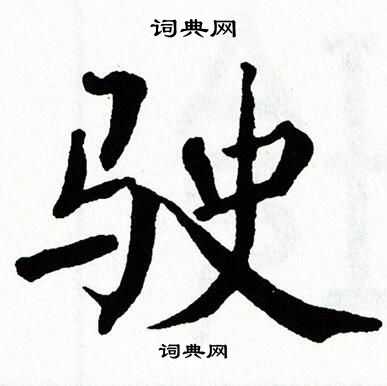 词典网
驶
词典网